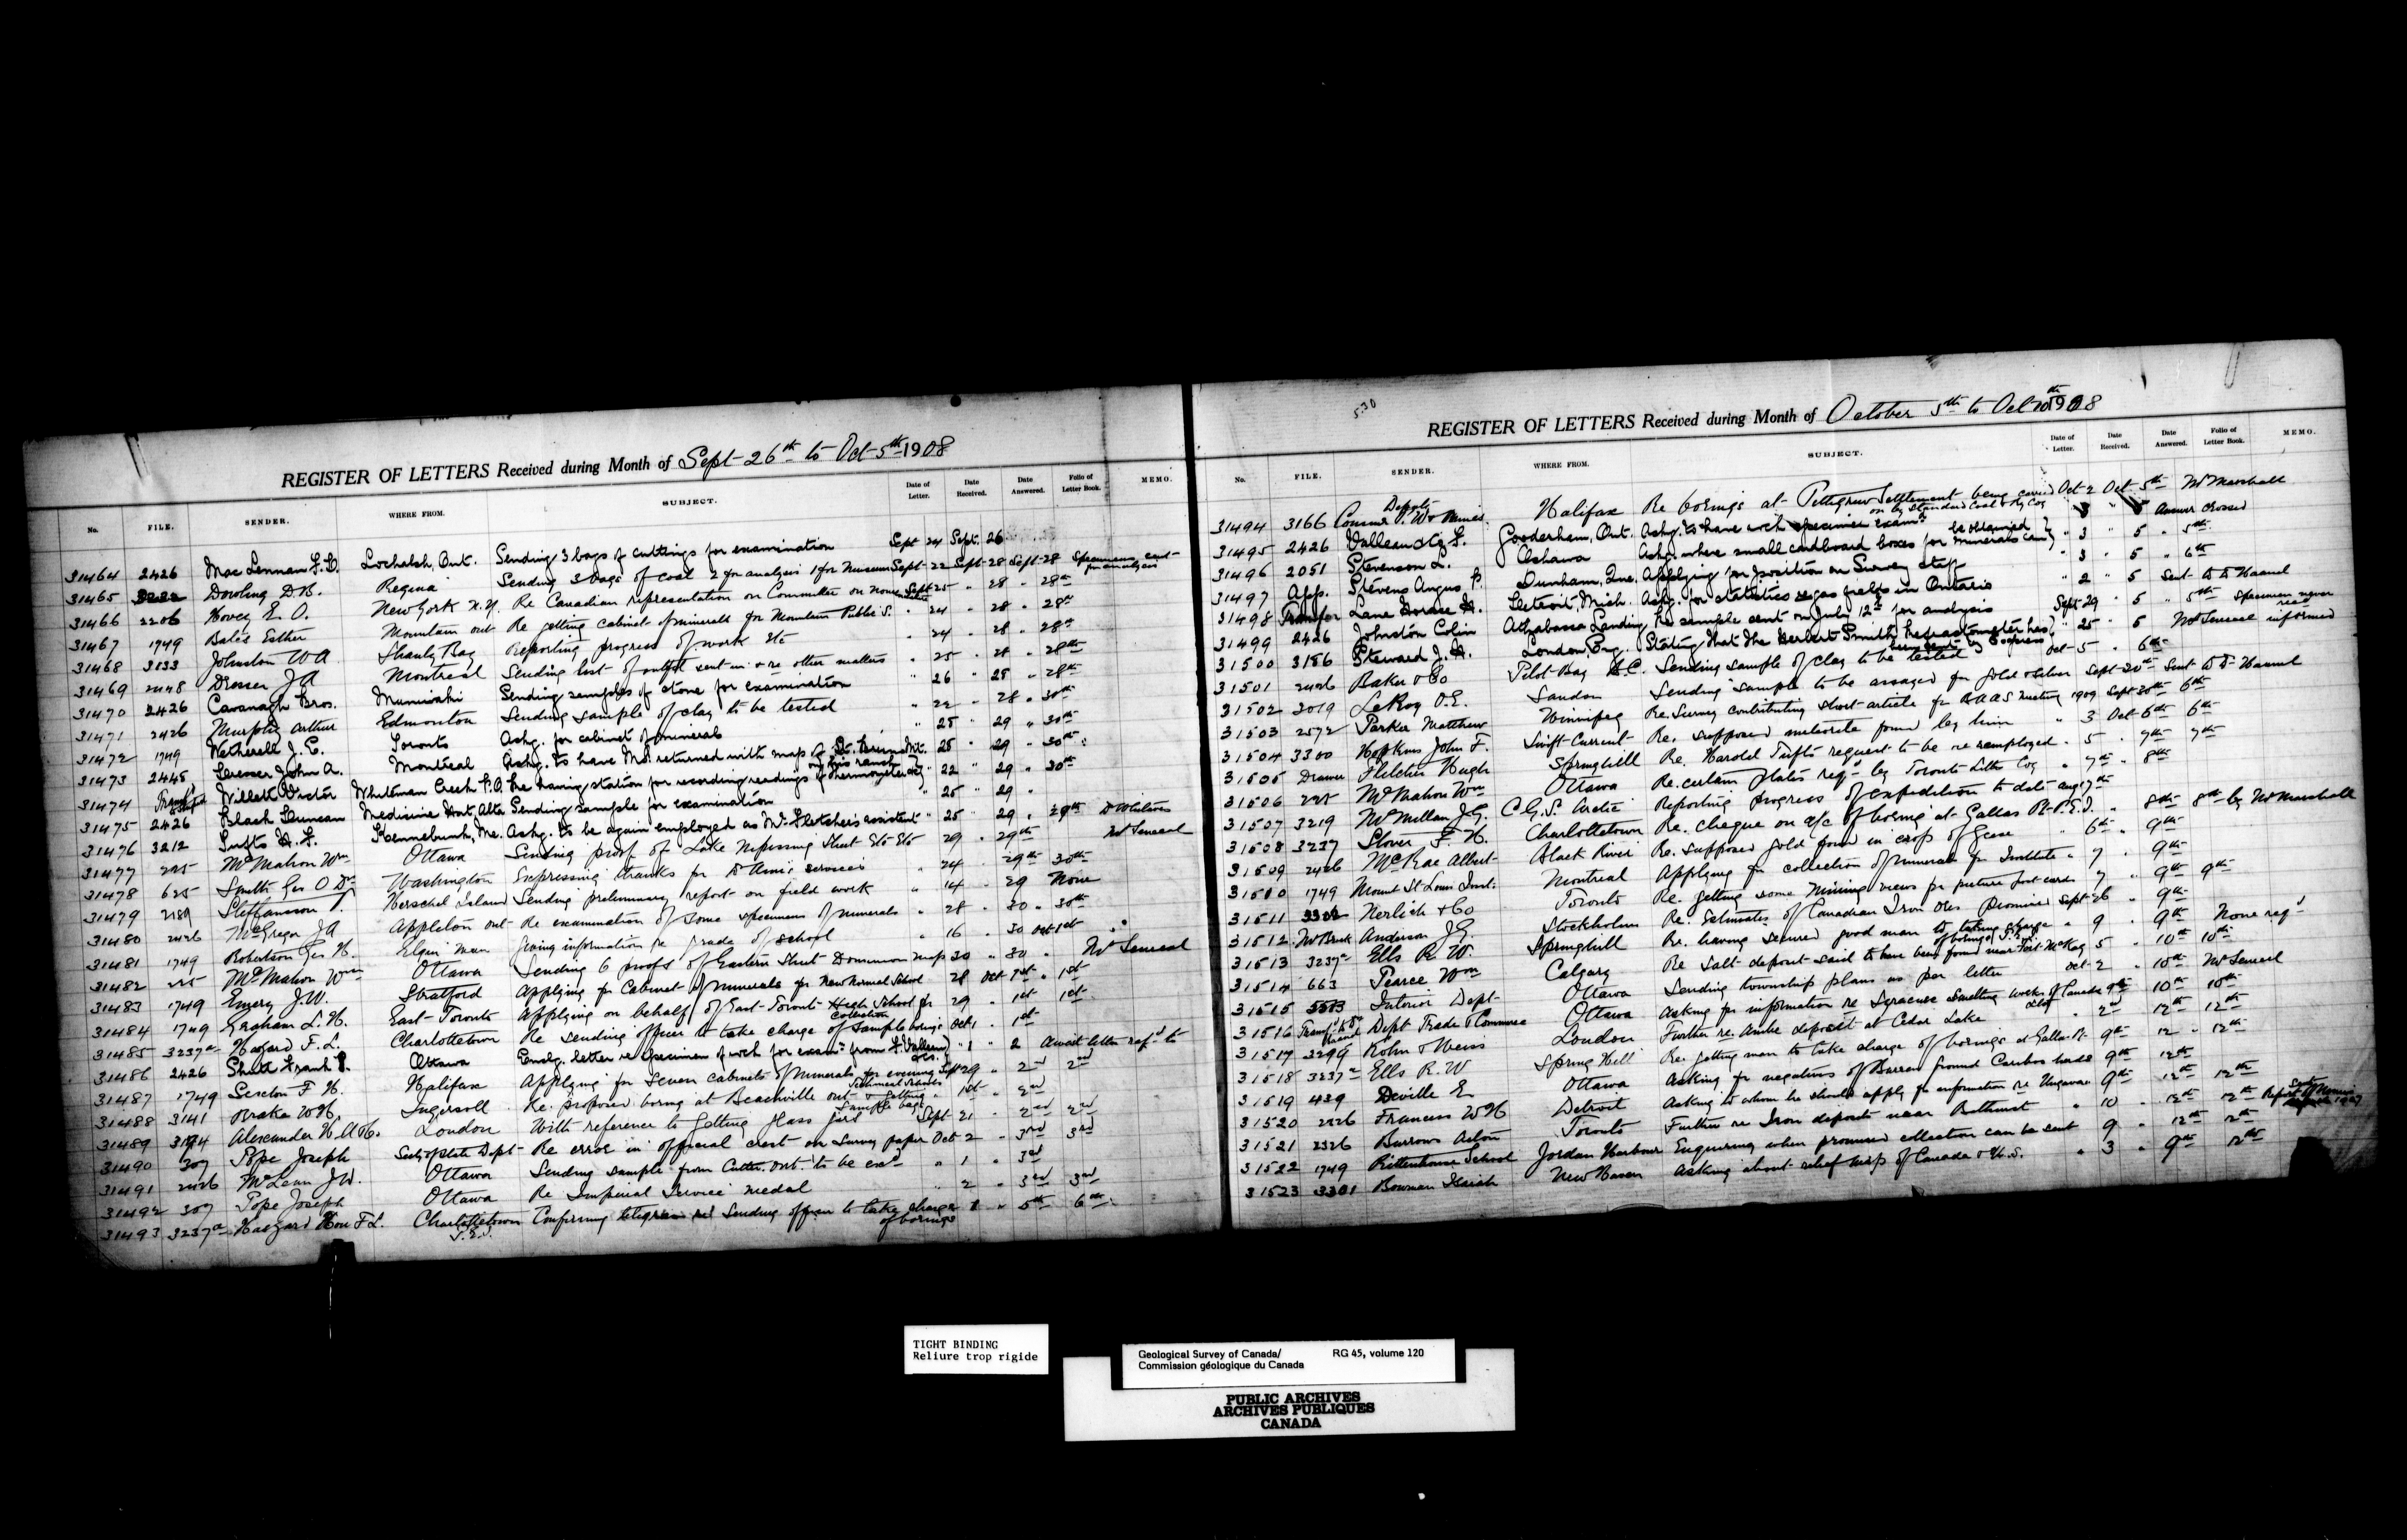 REGISTER OF LETTERS Received during Month of Sept 26th to Oct 5th 1908
No. FILE. SENDER. WHERE FROM. SUBJECT. Date of Letter. Date Received. Date Answered. Folio of Letter Book. MEMO.
31464 2426 MacLennan F.D. Lochalsh, Ont. Sending 3 bags of cuttings for examination Sept 24 Sept. 26
31465 Dowling D.B. Regina Sending 3 bags of coal 2 for analysis 1 for Museum Sept 22 Sept 28 Sept 28 Specimens sent for analysis
31466 2206 Hovey E.O. New York N.Y. Re Canadian representation on Committee on Nomenclature Sept 25 " 28 " 28th
31467 1749 Bales Esther Mountain Ont Re getting cabinet of minerals for Mountain Public S. " 24 " 28 " 28th
31468 3133 Johnston W A Shanly Bay Reporting progress of work etc " 24 " 28 " 28th
31469 Dresser J A Montreal Sending list of outfit sent in & re other matters " 25 " 28 " 28th
31470 2426 Cavanagh Bros. Muniwaki Sending samples of stone for examination " 26 " 28 " 28th
31471 2426 Murphy Arthur Edmonton Sending sample of clay to be tested " 22 28 " 30th
31472 1749 Wetherell J.E. Toronto Askg. for cabinet of minerals " 25 " 29 " 30th
31473 2445 Dresser John A. Montreal Askg. to have Ms. returned with map of St. Bruno Mt. " 28 " 29 " 30th
31474 Willett Victor Whiteman Creek P.O. Re having station for recording readings of thermometer etc on his ranch " 22 " 29 " 30th
31475 2426 Black Duncan Medicine Hat, Alta Sending sample for examination " 25 " 29 "
31476 3212 Tufts H.F. Kennebunk, Me. Askg. to be again employed as Mr. Fletchers assistant " 25 " 29 " 29th Dr Whiteaves
31477 225 McMahon Wm Ottawa Sending proof of Lake Nipissing Sheet Etc Etc 29 " 29th Mr Senecal
31478 625 Smith Geo O Dr Washington Expressing thanks for Dr Ami's services " 24 " 29th 30th
31479 2189 Steffansson V. Herschel Island Sending preliminary report on field work " 14 " 29 None
31480 2426 McGregor J A Appleton Ont Re examination of some specimens of minerals " 28 " 30 " 30th
31481 1749 Robertson Geo H. Elgin Man Giving information re grade of school " 16 " 30 Oct 1st
31482 225 McMahon Wm Ottawa Sending 6 proofs of Eastern Sheet Dominion map 30 " 30 " Mr Senecal
31483 1749 Emery J.W. Stratford Applying for Cabinet of minerals for New Normal School " 28 Oct 1st " 1st
31484 1749 Graham L.H. East Toronto Applying on behalf of East Toronto High School for Collection " 29 " 1st 1st
31485 3237a Hazard F.L. Charlottetown Re sending officer to take charge of sample borings Oct 1 " 1st
31486 2426 Shutt Frank T. Ottawa Enclg. letter re specimen of wch for exam. from G. Valleau " 1 " 2 Await letter ref'd to
31487 1749 Sexton F H. Halifax Applying for seven cabinets of minerals for evening Technical Schools Sept 29 " 2nd 2nd
31488 3141 Drake W H. Ingersoll Re proposed boring at Beachville Ont & getting sample bags " 1st " 2nd
31489 3194 Alexander H.A.H. London With reference to getting glass jars Sept 21 " 2nd 2nd
31490 307 Pope Joseph Secy of State Dept Re error in official crest on Survey paper Oct 2 " 3rd 3rd
31491 2426 McLean J W. Ottawa Sending sample from Cutler Ont. to be exd " 1 " 3rd
31492 307 Pope Joseph Ottawa Re Imperial Service medal " 2 " 3rd 3rd
31493 3237a Haszard Hon F L. Charlottetown P.E.I. Confirming telegram re sending officer to take charge of borings " 1 " 5th 6th
530
REGISTER OF LETTERS Received during Month of October 5th to Oct 10th 1908
No. FILE. SENDER. WHERE FROM. SUBJECT. Date of Letter. Date Received. Date Answered. Folio of Letter Book. MEMO.
31494 3166 Deputy Commr P.W. & Mines Halifax Re borings at Pettigrew Settlement being carried on by Standard Coal & Ry Coy Oct 2 Oct 5th Mr Marshall
31495 2426 Valleau G. Gooderham, Ont. Askg. to have wch specimen examd " 3 " 5 Answer crossed
31496 2051 Stevenson L. Oshawa Askg. where small cardboard boxes for minerals can be obtained " 3 " 5 " 5th
31497 App. Stevens Angus P. Dunham, Que. Applying for position on Survey staff " 3 " 5 " 6th
31498 Lane Horace H. Detroit, Mich. Askg. for statistics re gas fields in Ontario " 2 " 5 Sent to Dr Haanel
31499 2426 Johnston Colin Athabasca Landing Re sample sent on July 12th for analysis Sept 29 " 5 " 5th Specimen never recd
31500 3186 Steward J.H. London, Eng. Stating that the Herbert Smith Refractometer has been sent by Express " 25 " 5 Mr Senecal informed
31501 2426 Baker & Co Pilot Bay B.C. Sending sample of clay to be tested Oct 5 " 6th
31502 3019 LeRoy O.E. Sandon Sending sample to be assayed for gold & silver Sept 30th Sent to Dr Haanel
31503 2572 Parker Matthew Winnipeg Re. Survey contributing short article for BAAS Meeting 1909 Sept 30th 6th
31504 3300 Hopkins John F. Swift Current Re. supposed meteorite found by him " 3 Oct 6th 6th
31505 Drawer Fletcher Hugh Springhill Re. Harold Tufts request to be re employed " 5 " 7th 7th
31506 225 McMahon Wm Ottawa Re. certain plates reqd by Toronto Litho Coy " 7th " 8th
31507 3219 McMillan J.G. C.G.S. Arctic Reporting progress of expedition to date Aug 17th
31508 3237 Stover F. H. Charlottetown Re. cheque on a/c of boring at Gallas Pt P.E.I. " 8th 8th by Mr Marshall
31509 2426 McRae Albert Black River Re. supposed gold found in crop of Geese " 6th " 9th
31510 1749 Mount St Louis Inst. Montreal Applying for collection of minerals for Institute " 7 " 9th
31511 Nerlich & Co Toronto Re. getting some Mining views for picture post cards " 7 " 9th 9th
31512 Mr Brock Anderson J G. Stockholm Re. Estimates of Canadian Iron Ores promised Sept 26 " 9th
31513 3237a Ells R W. Springhill Re. having secured good man to taking charge of borings P.E.I. " 9 " 9th None reqd
31514 663 Pearce Wm Calgary Re Salt deposit said to have been found near Fort McKay 5 " 10th 10th
31515 Interior Dept Ottawa Sending township plans as per letter Oct 2 " 10th Mr Senecal
31516 Dept Trade & Commerce Ottawa Asking for information re Syracuse Smelting Works of Canada Ltd 9th " 10th 10th
31517 2299 Kohn & Weiss London Further re. Ambe deposit at Cedar Lake " 2nd " 12th 12th
31518 3237a Ells R.W Spring Hill Re. getting man to take charge of borings at Gallas Pt 9th " 12 " 12th
31519 439 Deville E Ottawa Asking for negatives of Barren Ground Caribou heads 9th " 12th
31520 2226 Frances W H Detroit Asking to whom he should apply for information re Ungava 9th " 12th 12th
31521 2326 Burrows Acton Toronto Further re Iron deposits near Bathurst " 10 " 12th 12th
31522 1749 Rittenhouse School Jordan Harbour Enquiring when promised collection can be sent " 9 " 12th 12th
31523 3301 Bowman Isaiah New Haven Asking about relief map of Canada & U.S. " 3 " 9th 12th
TIGHT BINDING
Reliure trop rigide
Geological Survey of Canada/ RG 45, volume 120
Commission géologique du Canada
PUBLIC ARCHIVES
ARCHIVES PUBLIQUES
CANADA